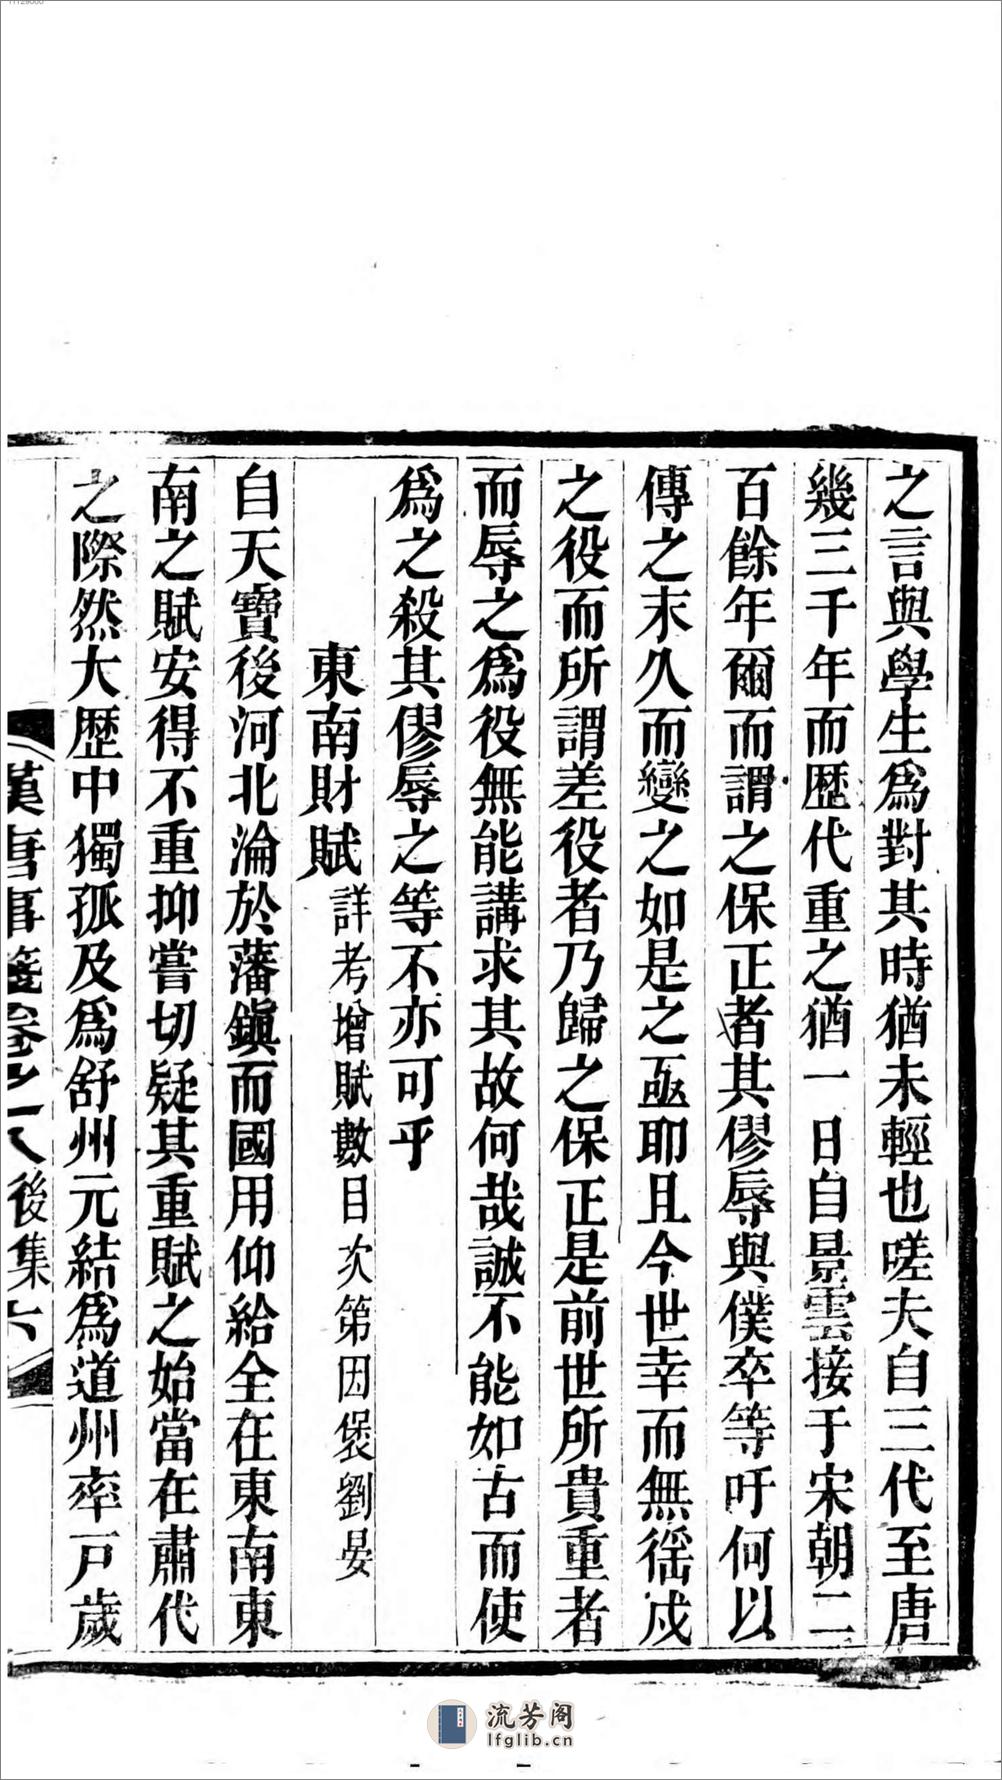 之言與學生爲對其時猶未輕也嗟夫自三代至唐
幾三千年而歷代重之猶一日自景雲接于宋朝二
百餘年爾而謂之保正者其僇辱與僕卒等吁何以
傳之末久而變之如是之亟耶且今世幸而無徭戍
之役而所謂差役者乃歸之保正是前世所貴重者
而辱之爲役無能講求其故何哉誠不能如古而使
爲之殺其僇辱之等不亦可乎
東南財賦詳考增賦數目次第因襃劉晏
自天寶後河北淪於藩鎭而國用仰給全在東南東
南之賦安得不重抑嘗切疑其重賦之始當在肅代
之際然大歷中獨孤及爲舒州元結爲道州率一戸歲
漢唐事箋卷之八後集六
流芳阁
lfglib.cn